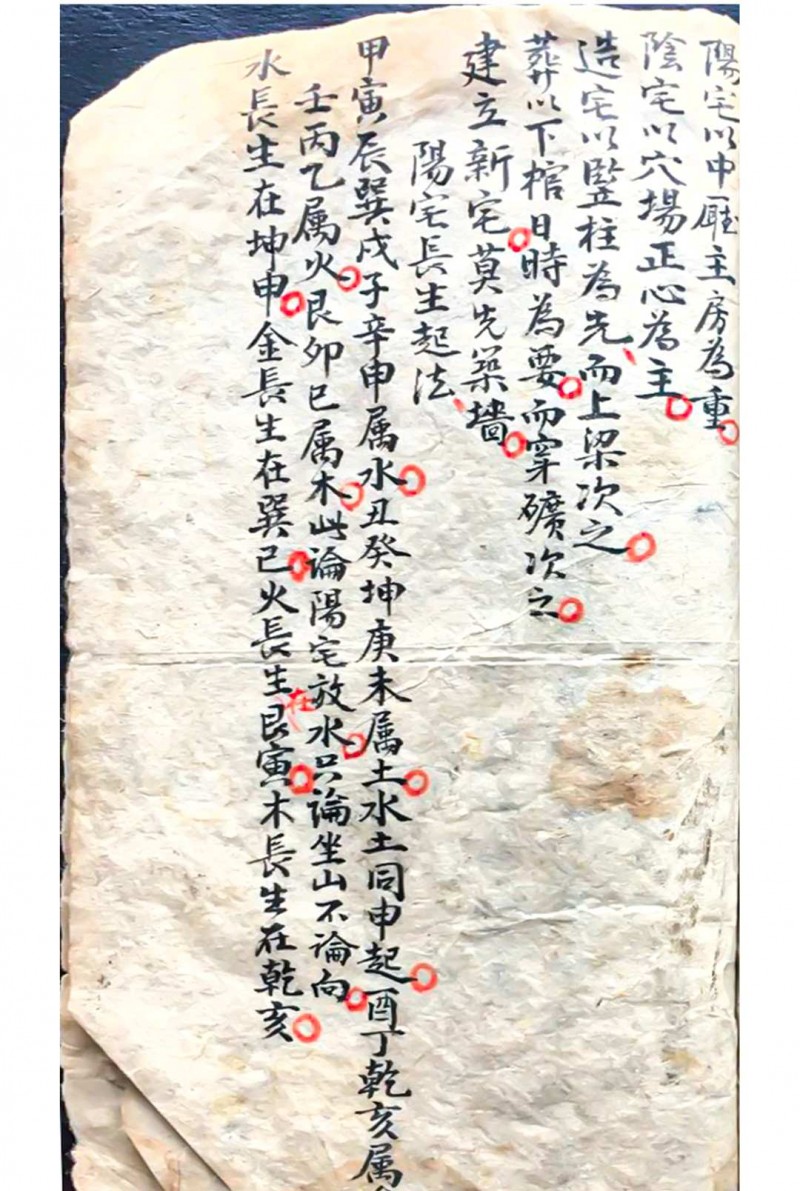 陽宅以中廳主房為重
陰宅以穴場正心為主
造宅以竪柱為先而上梁次之
葬以下棺日時為要而穿礦次之
建立新宅莫先築墻
陽宅長生起法
甲寅辰巽戌子辛申属水丑癸坤庚未属土水土同申起酉丁乾亥属
壬丙乙属火艮卯巳属木此論陽宅放水只論坐山不論向
水長生在坤申金長生在巽巳火長生在艮寅木長生在乾亥